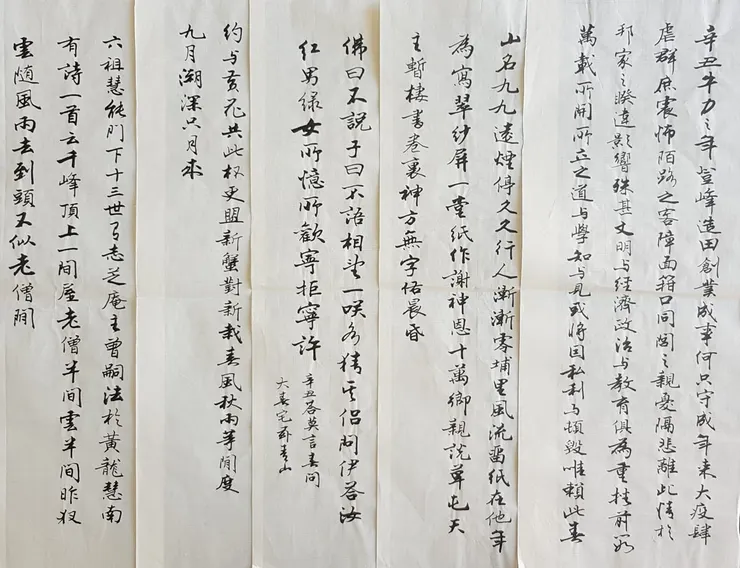 辛丑牛力之年登峰造田創業成車何只守成年來大疫肆
虐群庶震怖陌路之客障面籍口同閣之親憂隔悲離此情於
邦家之睽違影響殊甚文明與經濟政治與教育俱為重挫前
萬載所開所立之道與學知與見或將因私利與頓毀唯賴此春
山名九九遠煙停久久行人漸漸零埔里風流留紙在他年
為寫翠紗屏一堂紙作謝神恩十萬鄉親說草屯天
主暫棲書卷裏神方無字佑晨昏
佛曰不說子曰不語相望一咲各猜其侶問伊答汝
紅男綠女所憶所歡寧拒寧許
辛丑春莫言春問
大春宅卧青山
約与黃花共此杈更盟新蟹對新栽春風秋雨等閒度
九月湖深只月來
六祖慧能門下十三世有志芝庵主曾嗣法於黃龍慧南
有詩一首云千峰頂上一間屋老僧半間雲半間昨夜
雲随風雨去到頭不似老僧閒